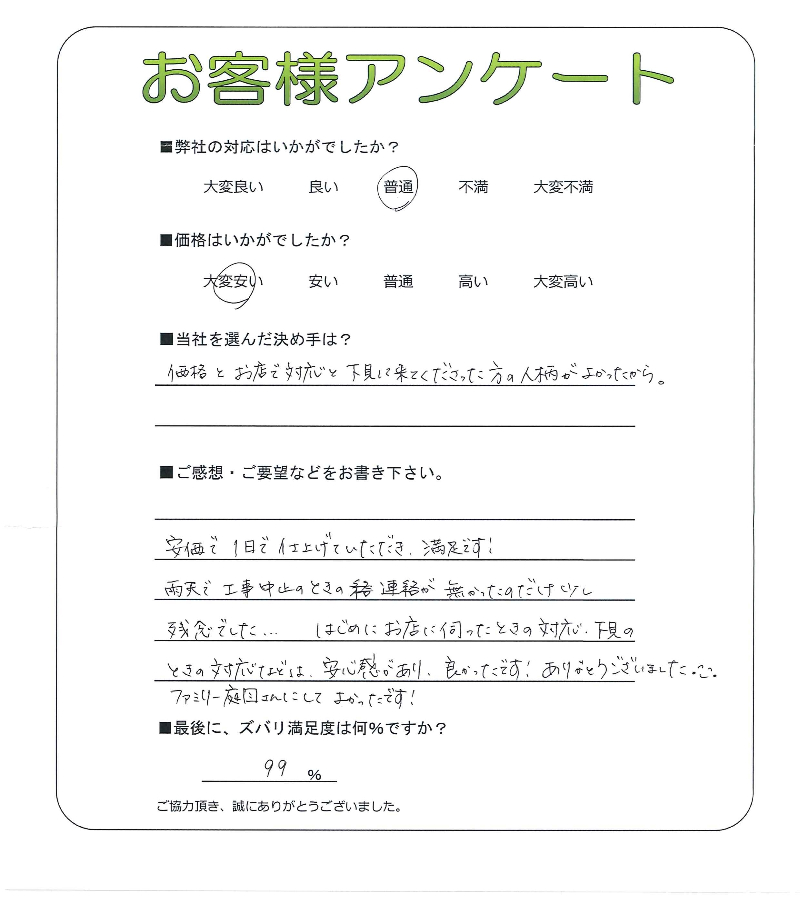 お客様アンケート
■弊社の対応はいかがでしたか？
大変良い　良い　普通　不満　大変不満
■価格はいかがでしたか？
大変安い　安い　普通　高い　大変高い
■当社を選んだ決め手は？
価格とお店で対応と下見に来てくださった方の人柄がよかったから。
■ご感想・ご要望などをお書き下さい。
安価で1日で仕上げていただき、満足です!
雨天で工事中止のときの連絡が無かったのだけ少し
残念でした… はじめにお店に伺ったときの対応、下見の
ときの対応などは、安心感があり、良かったです! ありがとうございました。
ファミリー庭園さんにしてよかったです!
■最後に、ズバリ満足度は何％ですか？
99 ％
ご協力頂き、誠にありがとうございました。